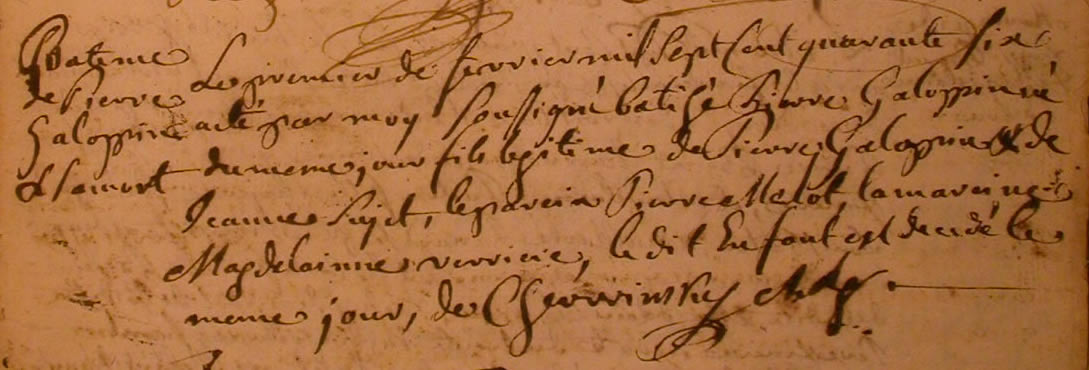 Batême
de Pierre
Galoppin
& sa mort
Le premier de fevrier mil sept cent quarante six
a eté par moy soussigné batisé Pierre Galoppin né
du meme jour fils legitime de Pierre Galoppin & de
Jeanne Sujet, le parein Pierre Melot, la mareine
Magdelainne verricie, le dit Enfant est decedé le
meme jour, de